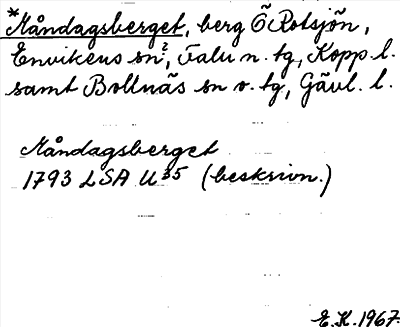 *Måndagsberget, berg Ö Rotsjön,
Envikens sn?, Falu n. tg, Kopp. l.
samt Bollnäs sn v. tg, Gävl. l.
Måndagsberget
1793 LSA U 35 (beskrivn.)
E.K. 1967.